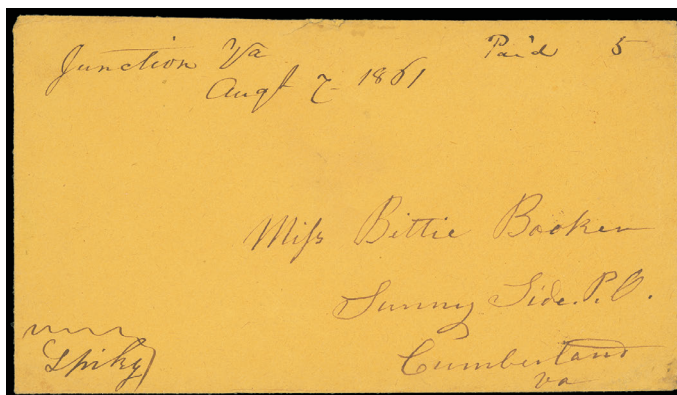 Junction Va
Paid 5
Augt 7 1861
Miss Bittie Booker
Sunny Side. P.O.
Cumberland
Va
Spiky)